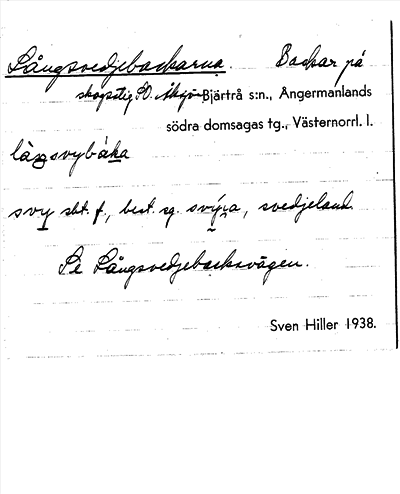 Långsvedjebackarna. Backar på
skogstig SO. Åkja Bjärtrå s:n., Ångermanlands
södra domsagas tg., Västernorrl. l.
låŋsvybáka
svy sbt. f., best. sg. svýa, svedjeland.
Se Långsvedjebacksvägen.
Sven Hiller 1938.